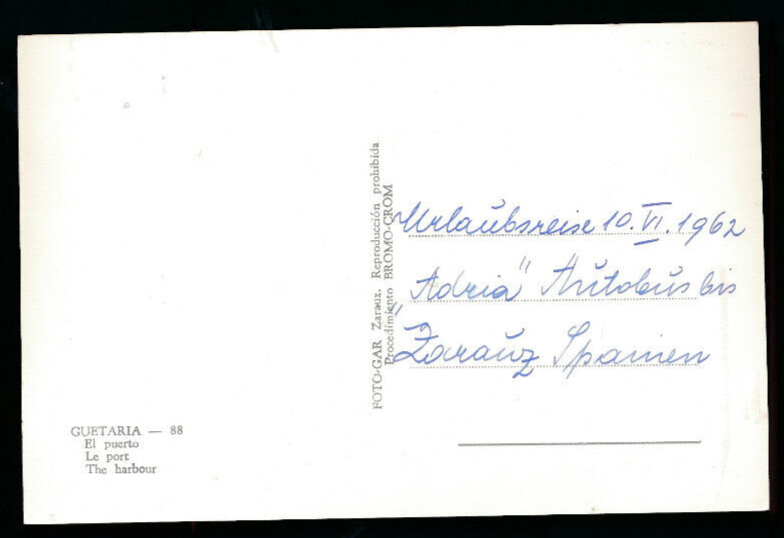 GUETARIA — 88
El puerto
Le port
The harbour
FOTO-GAR Zarauz. Reproducción prohibida
Procedimiento BROMO-CROM
Urlaubsreise 10. VI. 1962
„Adria" Autobus bis
Zarauz Spanien